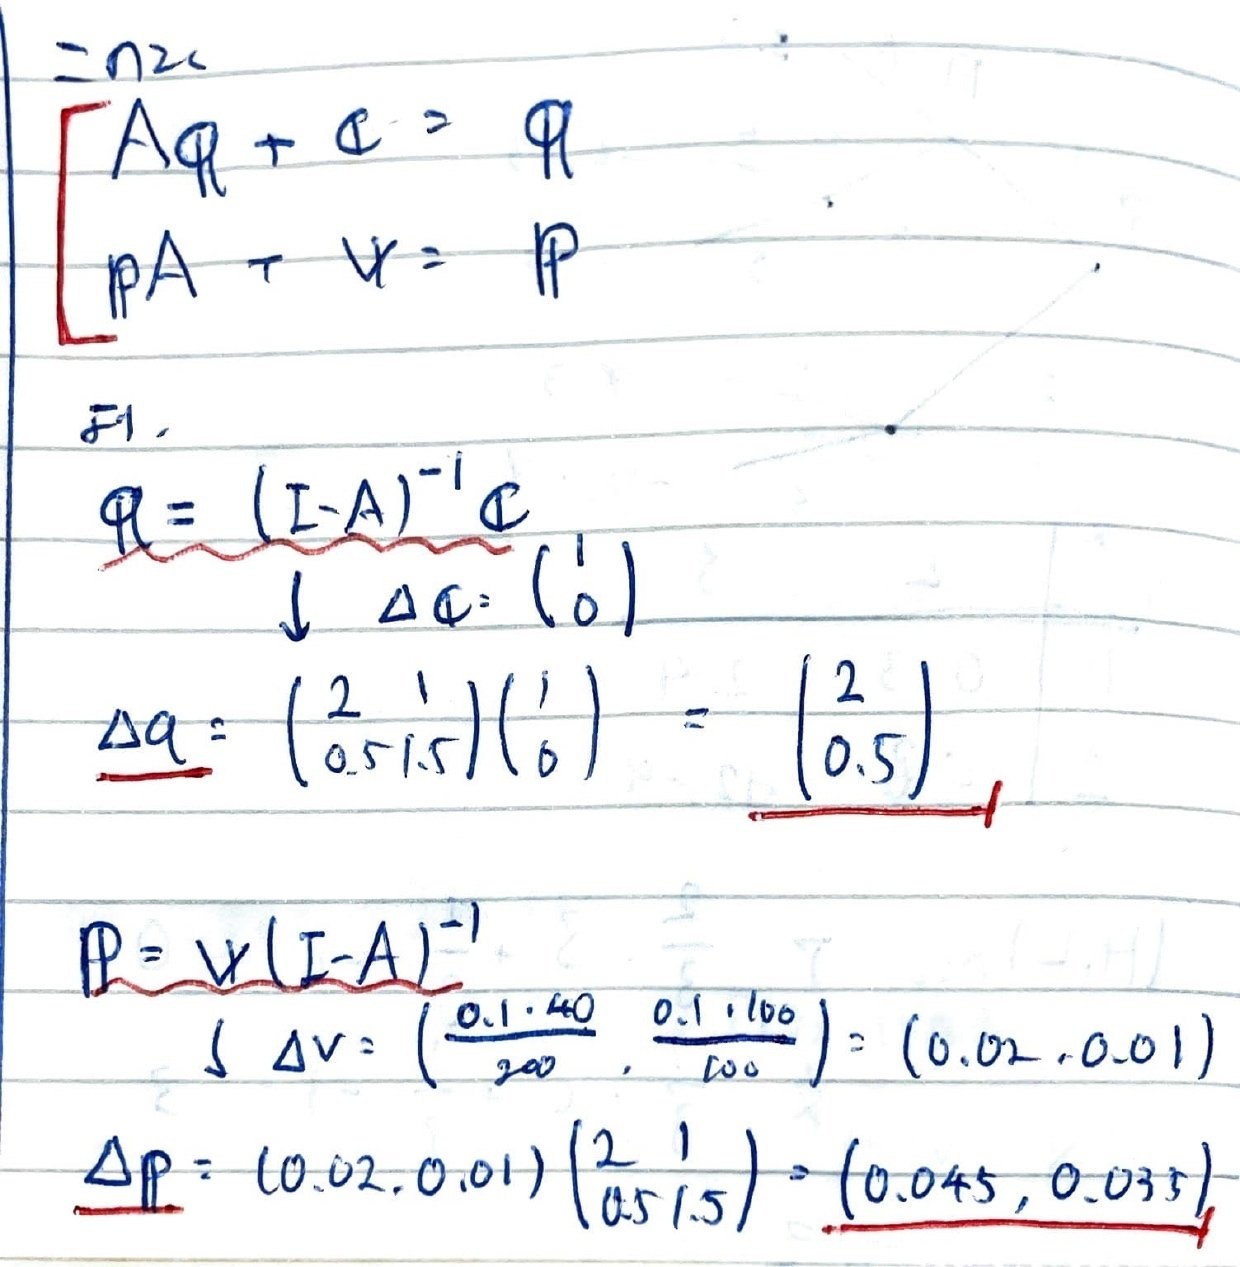 Aq + c = q
pA + v = p
q = (I-A)⁻¹ c
↓ Δc = (1 0)
Δq = (2 1 0.5 1.5)(1 0) = (2 0.5)
p = v(I-A)⁻¹
↓ Δv = (0.1・40/200, 0.1・100/100) = (0.02, 0.01)
Δp = (0.02, 0.01)(2 1 0.5 1.5) = (0.045, 0.035)